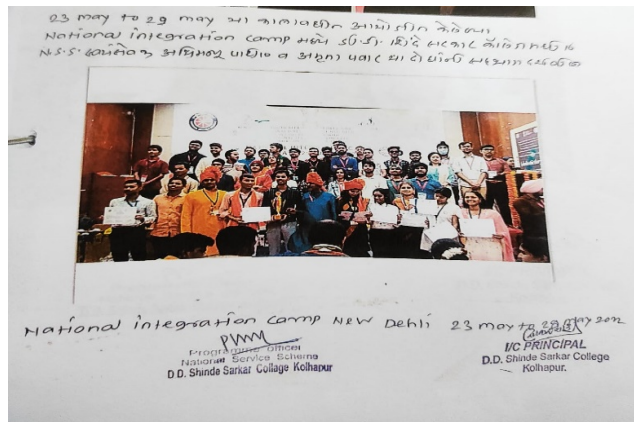 23 may to 29 may या कालावधीत आयोजीत केलेल्या
National integration camp मध्ये डी.डी. शिंदे सरकार कॉलेजमधील
N.S.S. स्वयंसेवक अभिमन्यू पाटील व अमृता पवार या दोघांनी सहभाग
National integration camp New Dehli 23 may to 29 may 2022
Programme Officer
National Service Scheme
D.D. Shinde Sarkar Collage Kolhapur
I/C PRINCIPAL
D.D. Shinde Sarkar College
Kolhapur.